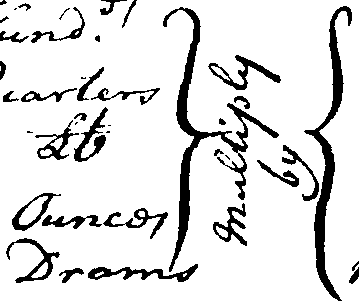 und.
uarters
lb
Ounces
Drams
Multiply
by